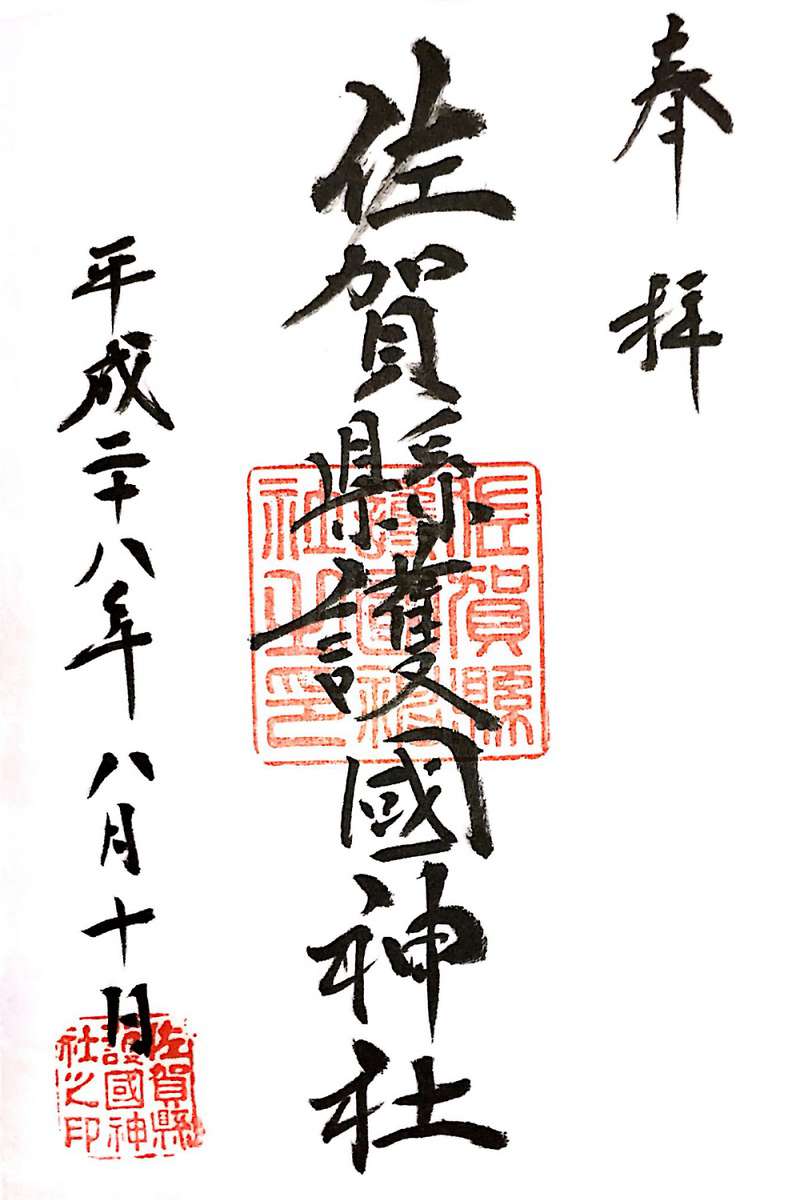 奉拝
佐賀縣護國神社
佐賀縣護國神社之印
平成二十八年八月十日
佐賀縣護國神社之印